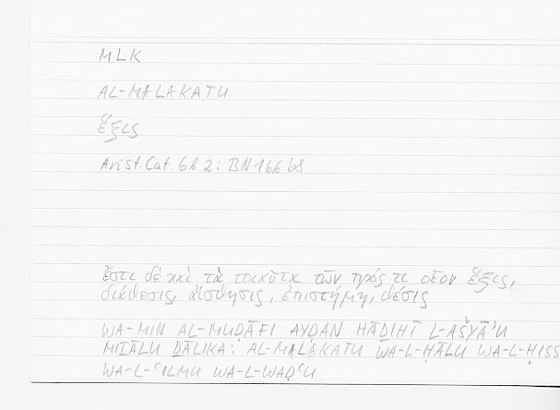 MLK
AL-MALAKATU
ἕξις
Arist. Cat. 6b 2: BN 166 b8
ἔστι δὲ καὶ τὰ τοιαῦτα τῶν πρός τι οἷον ἕξις,
διάθεσις, αἴσθησις, ἐπιστήμη, θέσις
WA-MIN AL-MUḌĀFI AYḌAN HĀḎIHĪ L-AŠYĀʾU
MIṮĀLU ḎĀLIKA: AL-MALAKATU WA-L-ḤĀLU WA-L-ḤISS
WA-L-ʿILMU WA-L-WAḌʿU